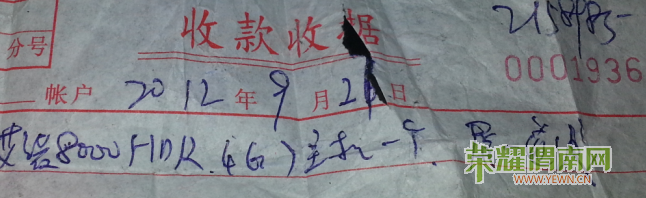 收款收据
2158985
分号
0001936
帐户 2012年9月2 日
8000HDR (4G)主机一个
荣耀渭南网
WWW.YEWN.CN